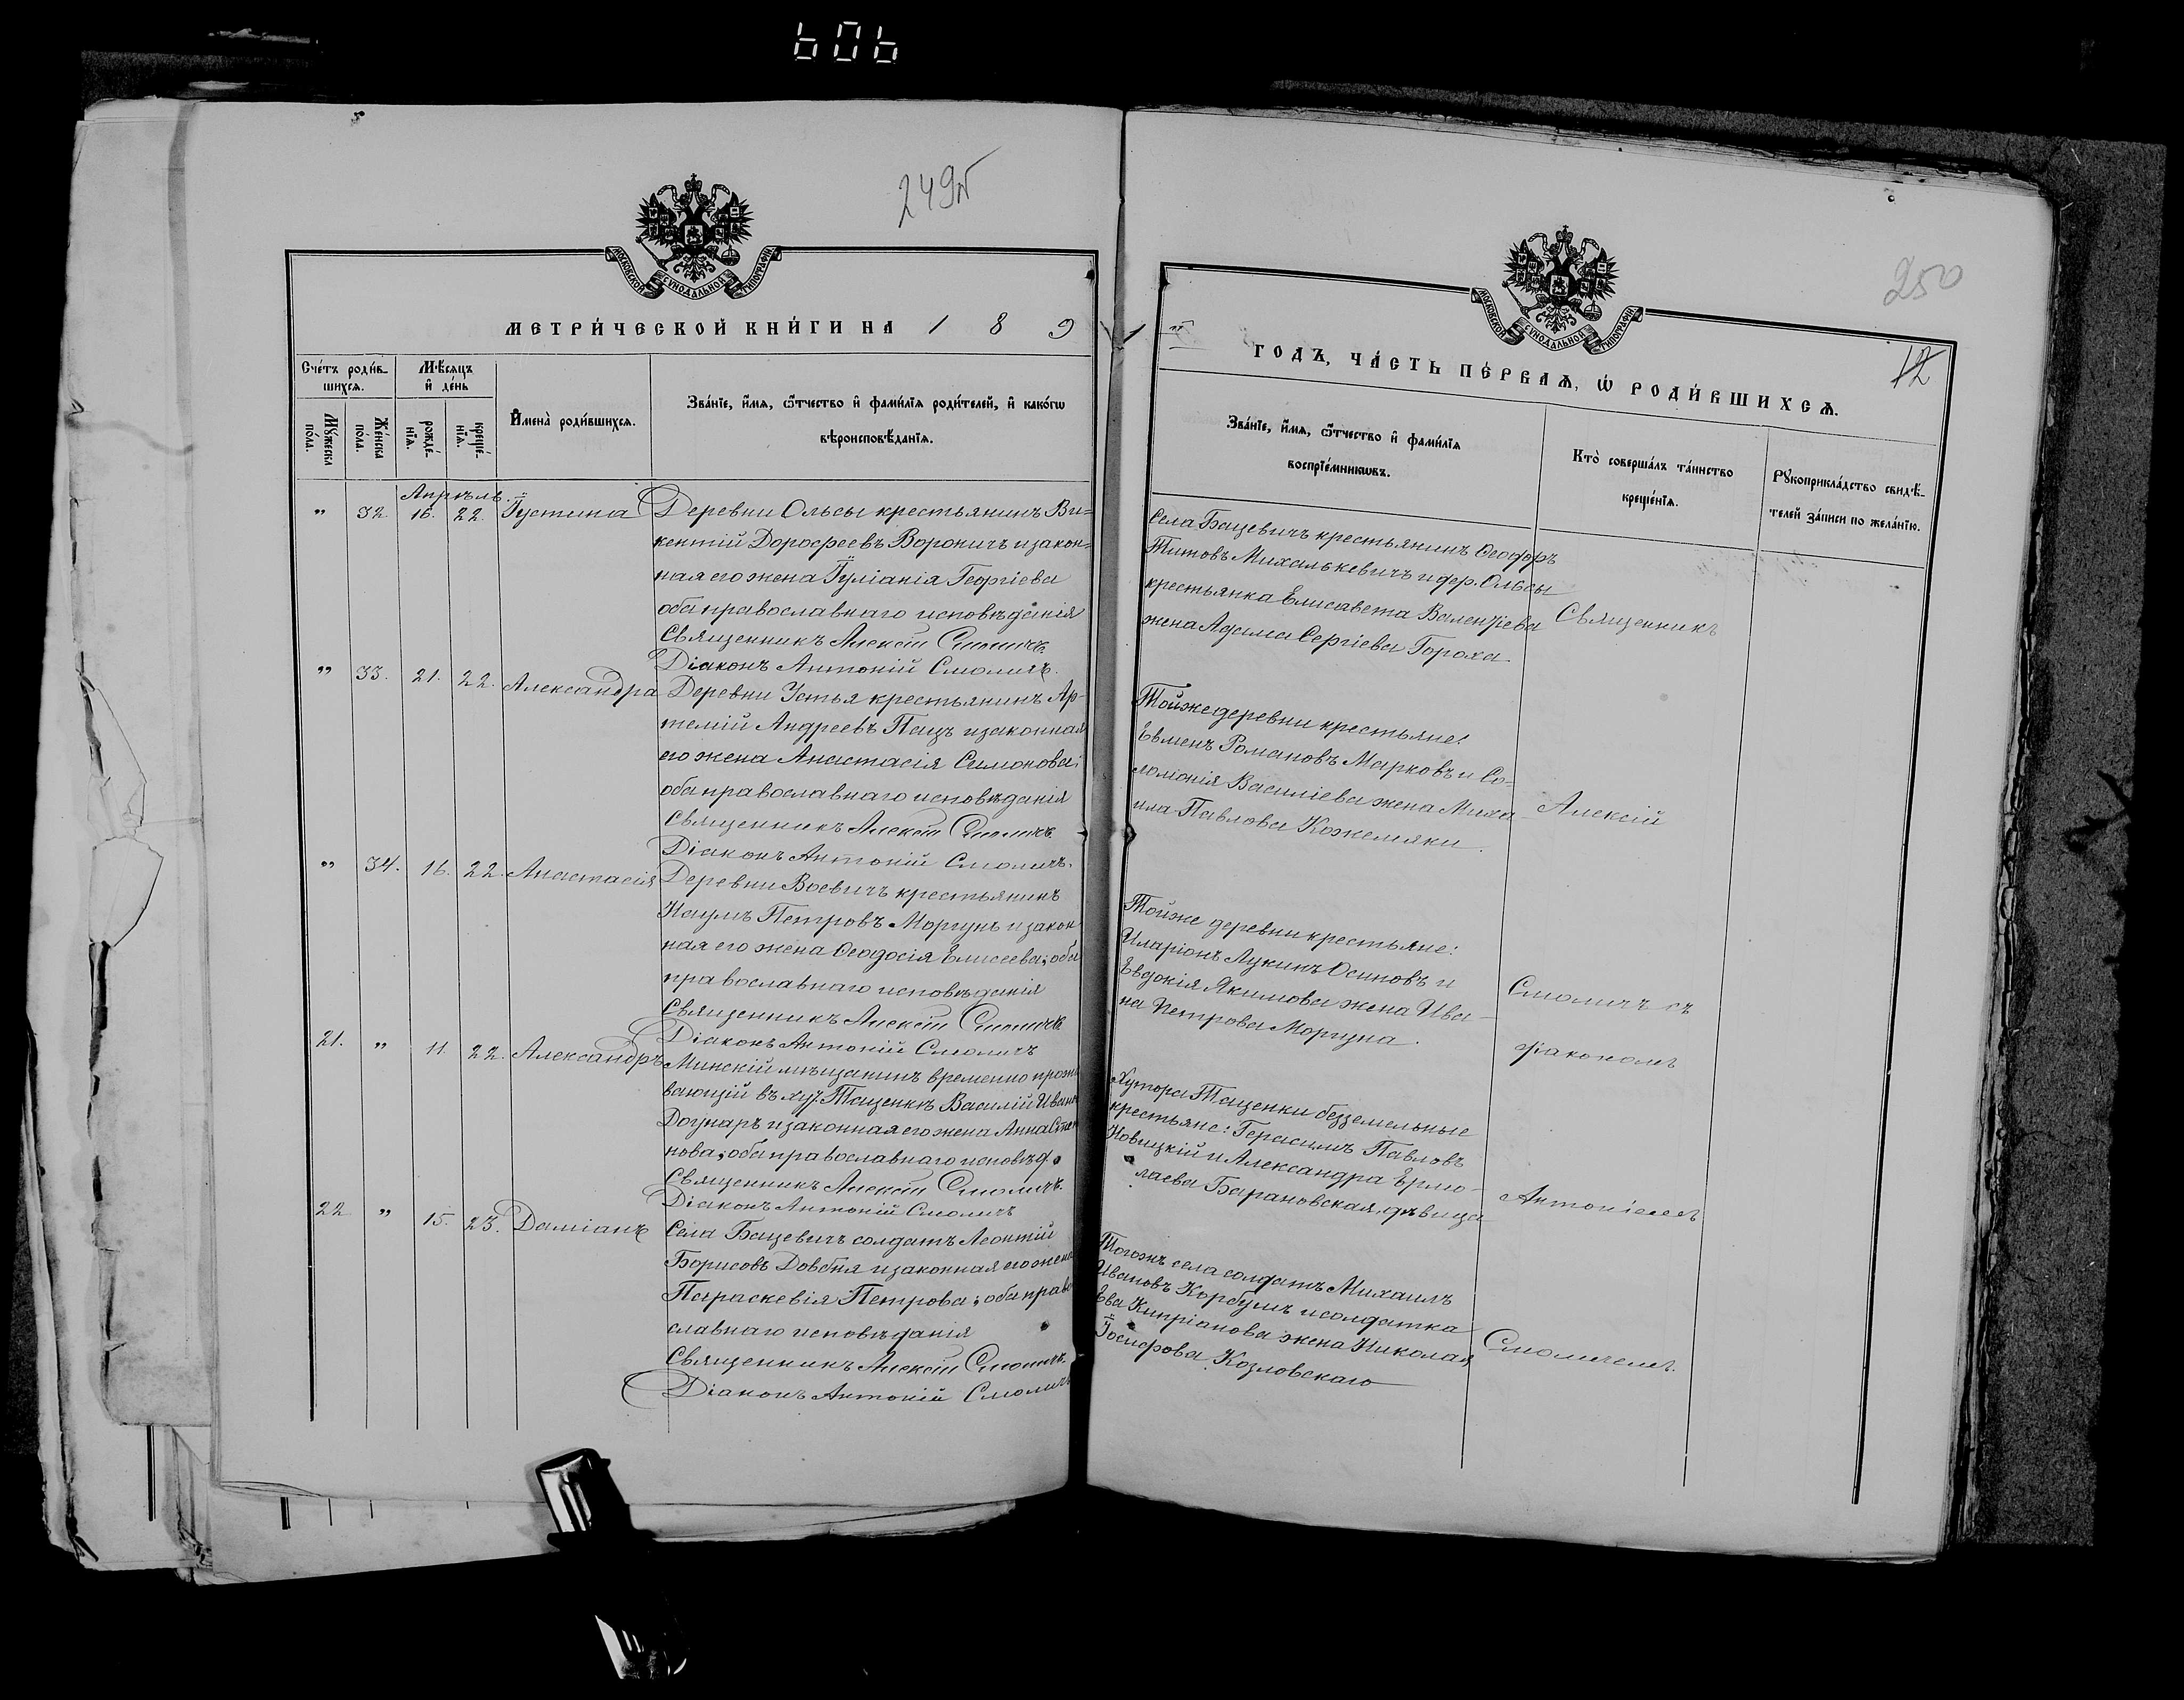 606
249об
МОСКОВСКОЙ СѴНОДАЛЬНОЙ ТИПОГРАФІИ
МЕТРИ́ЧЕСКОЙ КНИ́ГИ НА 1 8 9
Сче́тъ роди́в-
шихсѧ.
Мѣ́сяцъ
и҆ де́нь
Мꙋ́жеска
по́ла.
Же́нска
по́ла.
рожде́-
нїѧ.
креще́-
нїѧ.
И҆мена̀ роди́вшихсѧ.
Зва́нїе, и҆́мѧ, ѻ҆́тчество и҆ фами́лїѧ роди́телей, и҆ како́гѡ
вѣроисповѣ́данїѧ.
Апрѣль.
„ 32 16. 22. Іустина Деревни Ольсы крестьянинъ Ви-
кентій Дорофеевъ Вороничъ и закон-
ная его жена Іуліанія Георгіева
оба православнаго исповѣданія
Священникъ Алексій Смоличъ.
Діаконъ Антоній Смоличъ.
„ 33. 21. 22. Александра Деревни Устья крестьянинъ Ар-
темій Андреевъ Пацъ и законная
его жена Анастасія Симонова;
оба православнаго исповѣданія
Священникъ Алексій Смоличъ.
Діаконъ Антоній Смоличъ.
„ 34. 16. 22. Анастасія Деревни Воевичъ крестьянинъ
Наумъ Петровъ Моргунъ и закон
ная его жена Ѳеодосія Елисеева; оба
православнаго исповѣданія
Священникъ Алексій Смоличъ
Діаконъ Антоній Смоличъ
21. „ 11. 22. Александръ Минскій мѣщанинъ временно прожи
вающій въ хут. Тащенкѣ Василій Ивано
и законная его жена Анна
нова; оба православнаго исповѣд.
Священникъ Алексій Смоличъ.
Діаконъ Антоній Смоличъ
22 „ 15. 23. Даміанъ Села Бацевичъ солдатъ Леонтій
Борисовъ Довбня и законная его жена
Параскевія Петрова; оба право
славнаго исповѣданія
Священникъ Алексій Смоличъ.
Діаконъ Антоній Смоличъ
250
12
МОСКОВСКОЙ СѴНОДАЛЬНОЙ ТИПОГРАФІИ
1 ГОДЪ, ЧА́СТЬ ПЕ́РВАѦ, Ѡ҆ РОДИ́ВШИХСѦ.
Зва́нїе, и҆́мѧ, ѻ҆́тчество и҆ фами́лїѧ
воспрїе́мникѡвъ.
Кто̀ соверша́лъ та́инство
креще́нїѧ.
Рꙋкоприкла́дство свидѣ́-
телей за́писи по жела́нїю.
Села Бацевичъ крестьянинъ Ѳеодоръ
Титовъ Михалькевичъ и дер. Ольсы
крестьянка Елисавета Валентіева
жена Адама Сергіева Гороха.
Священникъ
Той же деревни крестьяне:
Евменъ Романовъ Марковъ и Со-
ломонія Василіева жена Миха-
ила Павлова Кожемяки.
Алексій
Той же деревни крестьяне:
Иларіонъ Лукинъ Осиповъ и
Евдокія Якимова жена Ива-
на Петрова Моргуна.
Смоличъ съ
діакономъ
Хутора Тащенки безземельные
крестьяне: Герасимъ Павловъ
Новицкій и Александра Ермо-
лаева Барановская, дѣвица
Антоніемъ
Тогожъ села солдатъ Михаилъ
Ивановъ Корбутъ и солдатка
Ева Кипріанова жена Николая
Іосифова Козловскаго
Смоличемъ.